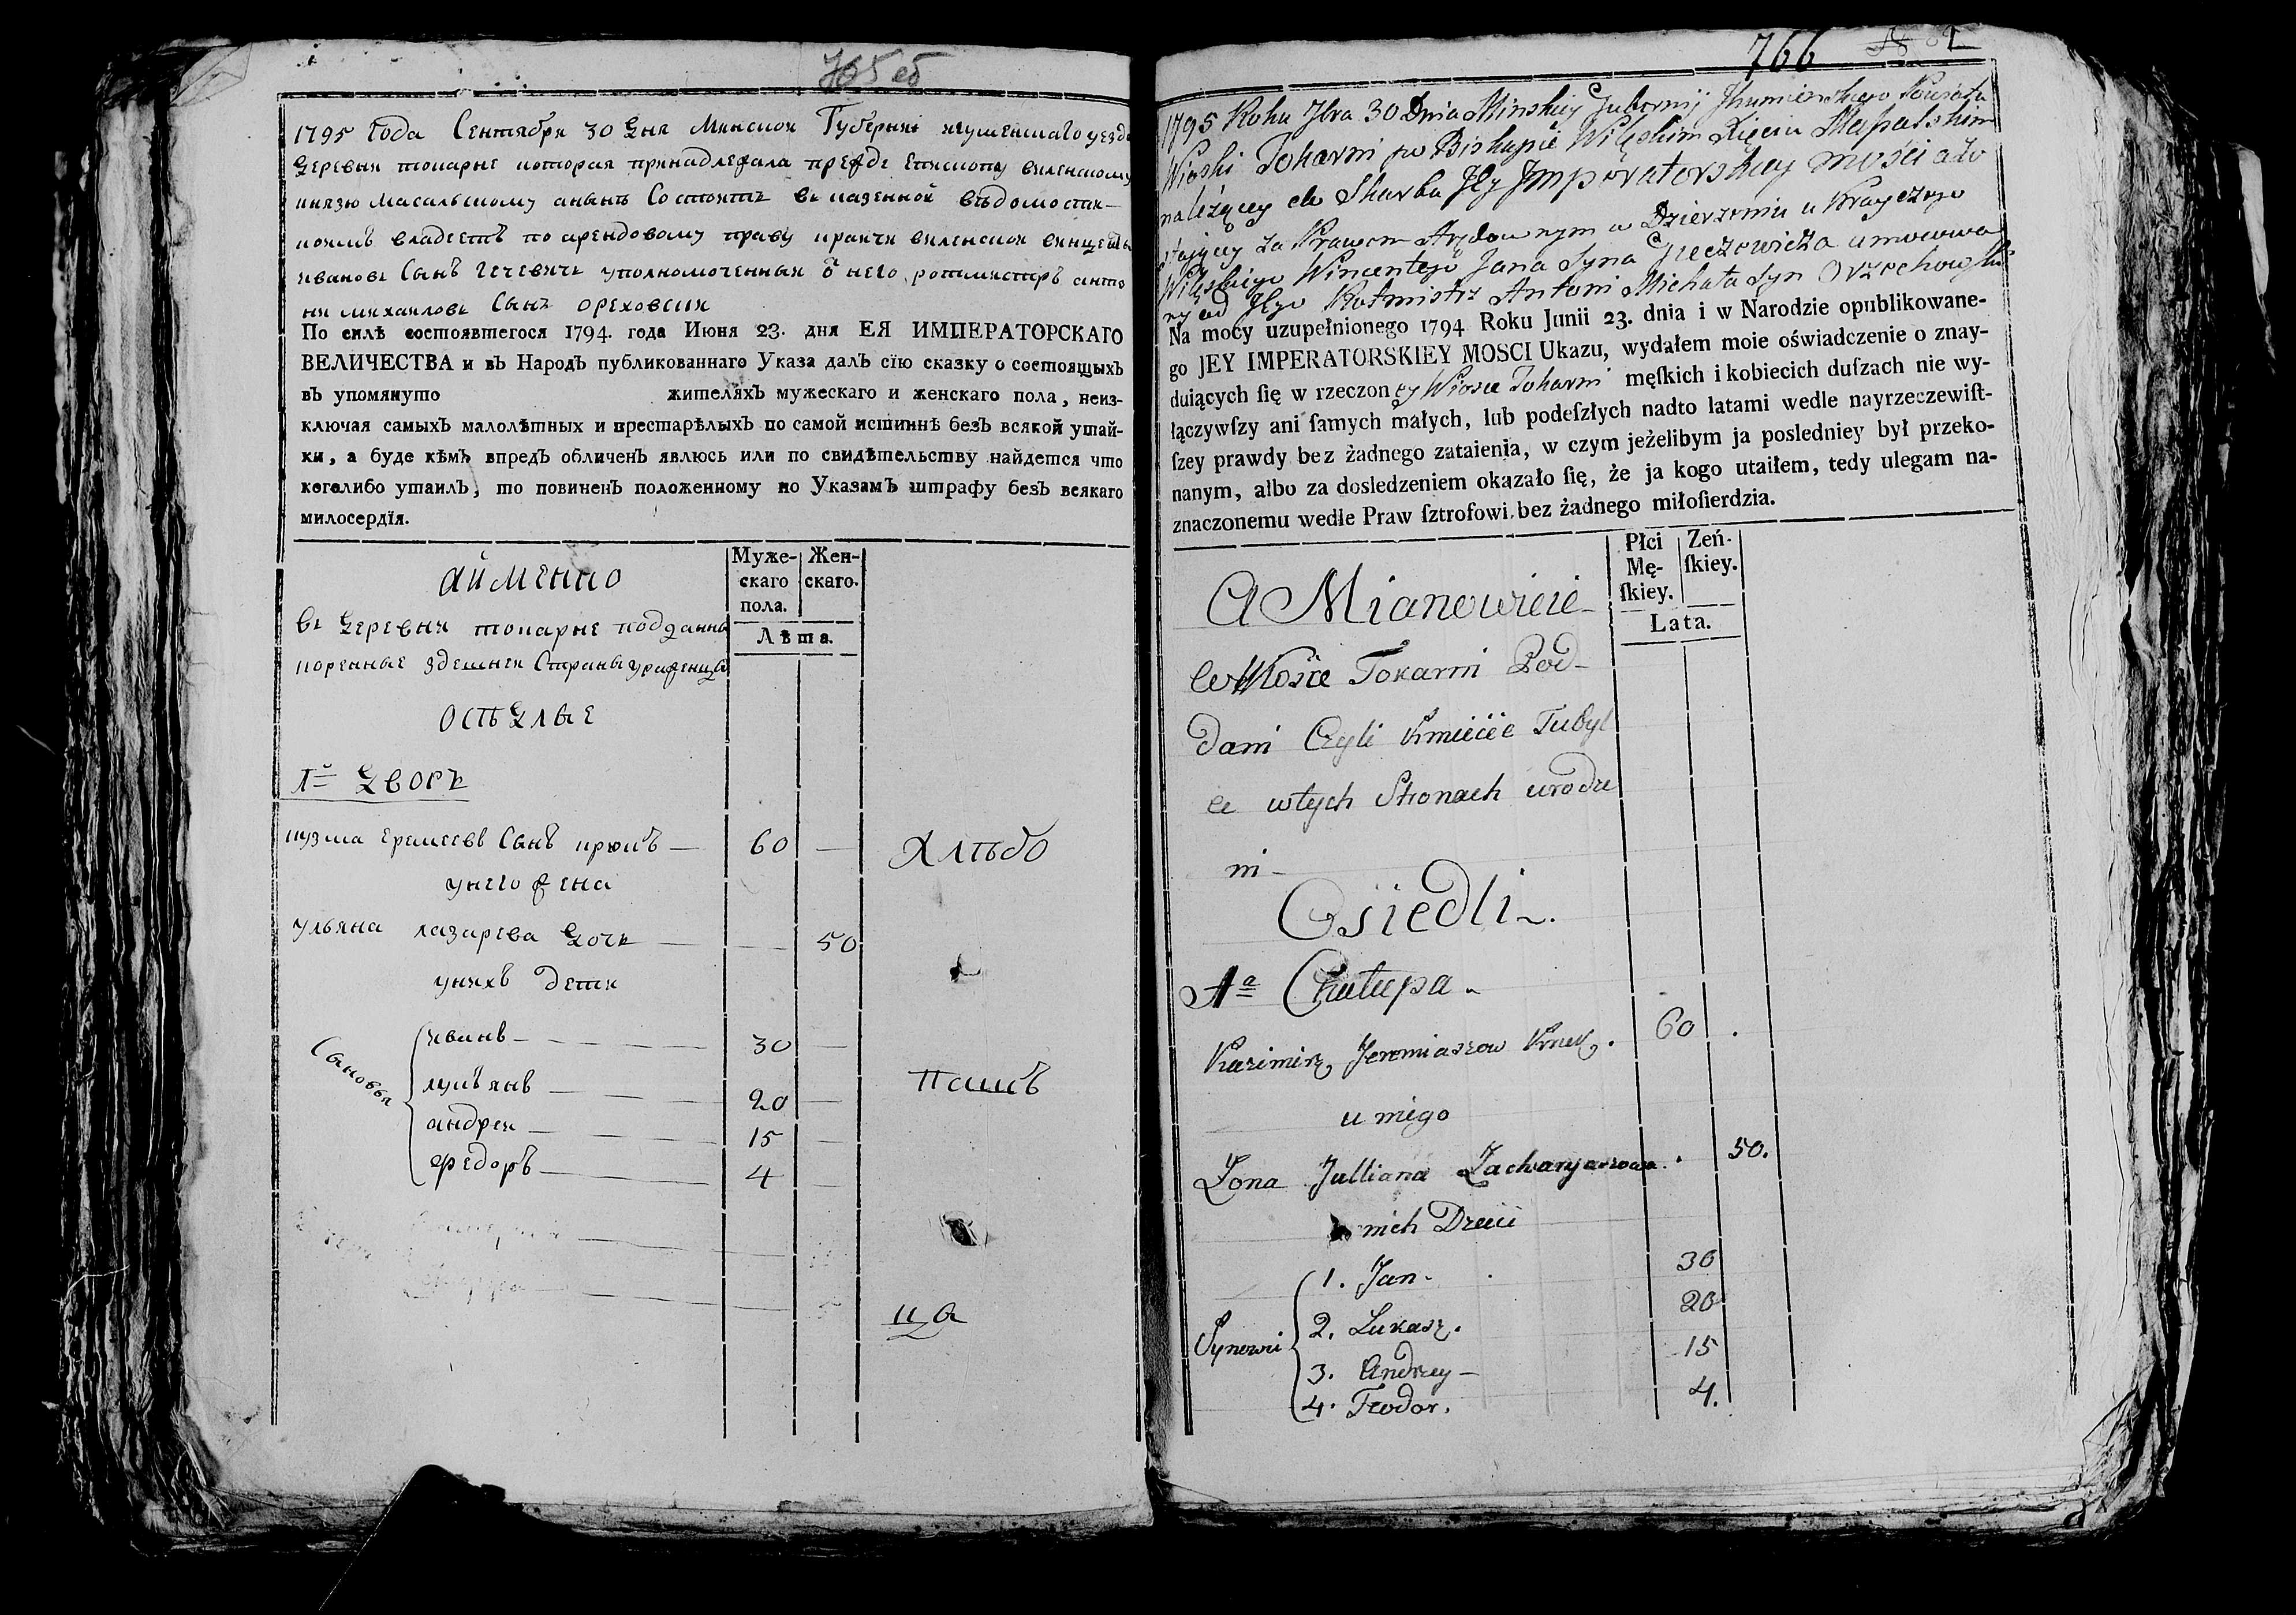 765 об
1795 года Сентября 30 дня Минской Губернии игуменшаго уезда
деревня токарне которая принадлежала прежде епископу виленскому
князю масальскому а нынѣ состоитъ в казенной вѣдомости
коимъ владеетъ по арендовому праву крайчи виленскои винценты
иванова сынъ гечевичь уполномоченныи о него ротмистръ анто
ни михаилова сынъ ореховски
По силѣ состоявшегося 1794. года Июня 23. дня ЕЯ ИМПЕРАТОРСКАГО
ВЕЛИЧЕСТВА и въ Народъ публикованнаго Указа далъ сїю сказку о состоящыхъ
въ упомянуто жителяхъ мужескаго и женскаго пола, неиз-
ключая самыхъ малолѣтных и престарѣлыхъ по самой истиннѣ безъ всякой утай-
ки, а буде кѣмъ впредъ обличенъ явлюсь или по свидѣтельству найдется что
коголибо утаилъ, то повиненъ положенному по Указамъ штрафу безъ всякаго
милосердїя.
аймено
Муже-
скаго
пола.
Жен-
скаго.
Лѣта.
в деревни токарне подданны
коренные здешнеи страны ураженцы
оседлые
1й дворъ
кузма еремеевъ сынъ крюкъ 60
Хлѣбо
у него жена
ульяна лазарева дочь 50
у нихъ дети
Сыновья
иванъ 30
лукьянъ 20
пашъ
андреи 15
федоръ 4
цы
766
1795 Roku 7bra 30 Dnia Minskiey Gubernij Ihumienskiego Powiatu
Wioski Tokarni po Biskupie Wileńskim Xięciu Massalskim
należącey do Skarbu Jey Imperatorskiey mości a zo
stającey za Prawem Arędownym w Dzierżeniu u Krayczego
Wileńskiego Wincentego Jana Syna Gieczewicza umocowa
ny od Jego Rotmistrz Antoni Michała Syn Orzechowski
Na mocy uzupełnionego 1794 Roku Junii 23. dnia i w Narodzie opublikowane-
go JEY IMPERATORSKIEY MOSCI Ukazu, wydałem moie oświadczenie o znay-
duiących ſię w rzeczoney Wiosce Tokarni męſkich i kobiecich duſzach nie wy-
łączywſzy ani ſamych małych, lub podeſzłych nadto latami wedle nayrzeczewiſt-
ſzey prawdy bez żadnego zataienia, w czym jeżelibym ja posledniey był przeko-
nanym, albo za dosledzeniem okazało ſię, że ja kogo utaiłem, tedy ulegam na-
znaczonemu wedle Praw ſztrofowi bez żadnego miłoſierdzia.
A Mianowicie
Płci
Mę-
ſkiey.
Zeń-
ſkiey.
Lata.
w Wiosce Tokarni Pod-
dani Czyli Kmiecie Tubyl
ce w tych Stronach urodze
ni
Osiedli
1a Chałupa
Kazimirz Jeremiaszow Kruk. 60
u niego
Zona Julliana Zacharyaszowa 50.
u nich Dzieci
Synowie
1. Jan. 30
2. Łukasz. 20
3. Andrzey 15
4. Teodor. 4.